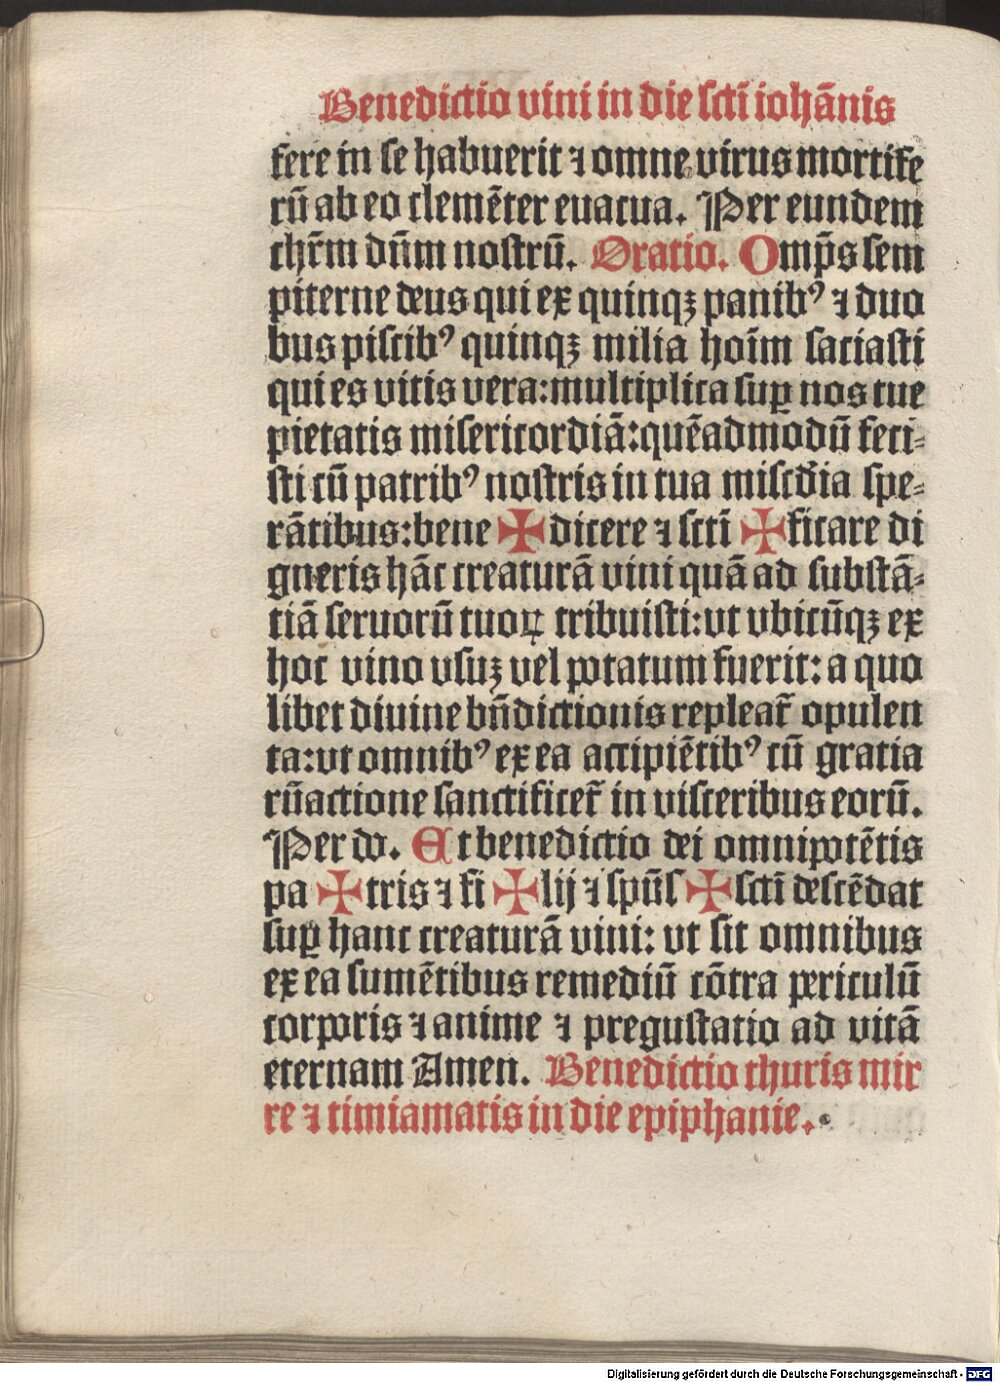 Benedictio vini in die scti̅ ioha̅nis
fere in se habuerit ⁊ omne virus mortife
ru̅ ab eo cleme̅ter euacua. Per eundem
chr̅m dn̅m nostru̅. Oratio. Omp̅s sem
piterne deus qui ex quinqꝫ panibꝰ ⁊ duo
bus piscibꝰ quinqꝫ milia hoi̅m saciasti
qui es vitis vera:multiplica suꝑ nos tue
pietatis misericordia̅:que̅admodu̅ feci⸗
sti cu̅ patribꝰ nostris in tua misc̅dia spe⸗
ra̅tibus:bene ✠ dicere ⁊ scti̅ ✠ ficare di
gneris ha̅c creatura̅ vini qua̅ ad substa̅⸗
tia̅ seruoru̅ tuoꝝ tribuisti:vt vbicu̅qꝫ ex
hoc vino vsuꝫ vel potatum fuerit: a quo
libet diuine bn̅dictionis repleat̅ opulen
ta:vt omnibꝰ ex ea accipie̅tibꝰ cu̅ gratia
ru̅actione sanctificet̅ in visceribus eoru̅.
Per do. Et benedictio dei omnipote̅tis
pa ✠ tris ⁊ fi ✠ lij ⁊ spu̅s ✠ scti̅ desce̅dat
suꝑ hanc creatura̅ vini: vt sit omnibus
ex ea sume̅tibus remediu̅ co̅tra periculu̅
corporis ⁊ anime ⁊ pregustatio ad vita̅
eternam Amen. Benedictio thuris mir
re ⁊ timiamatis in die epiphanie.
Digitalisierung gefördert durch die Deutsche Forschungsgemeinschaft - DFG